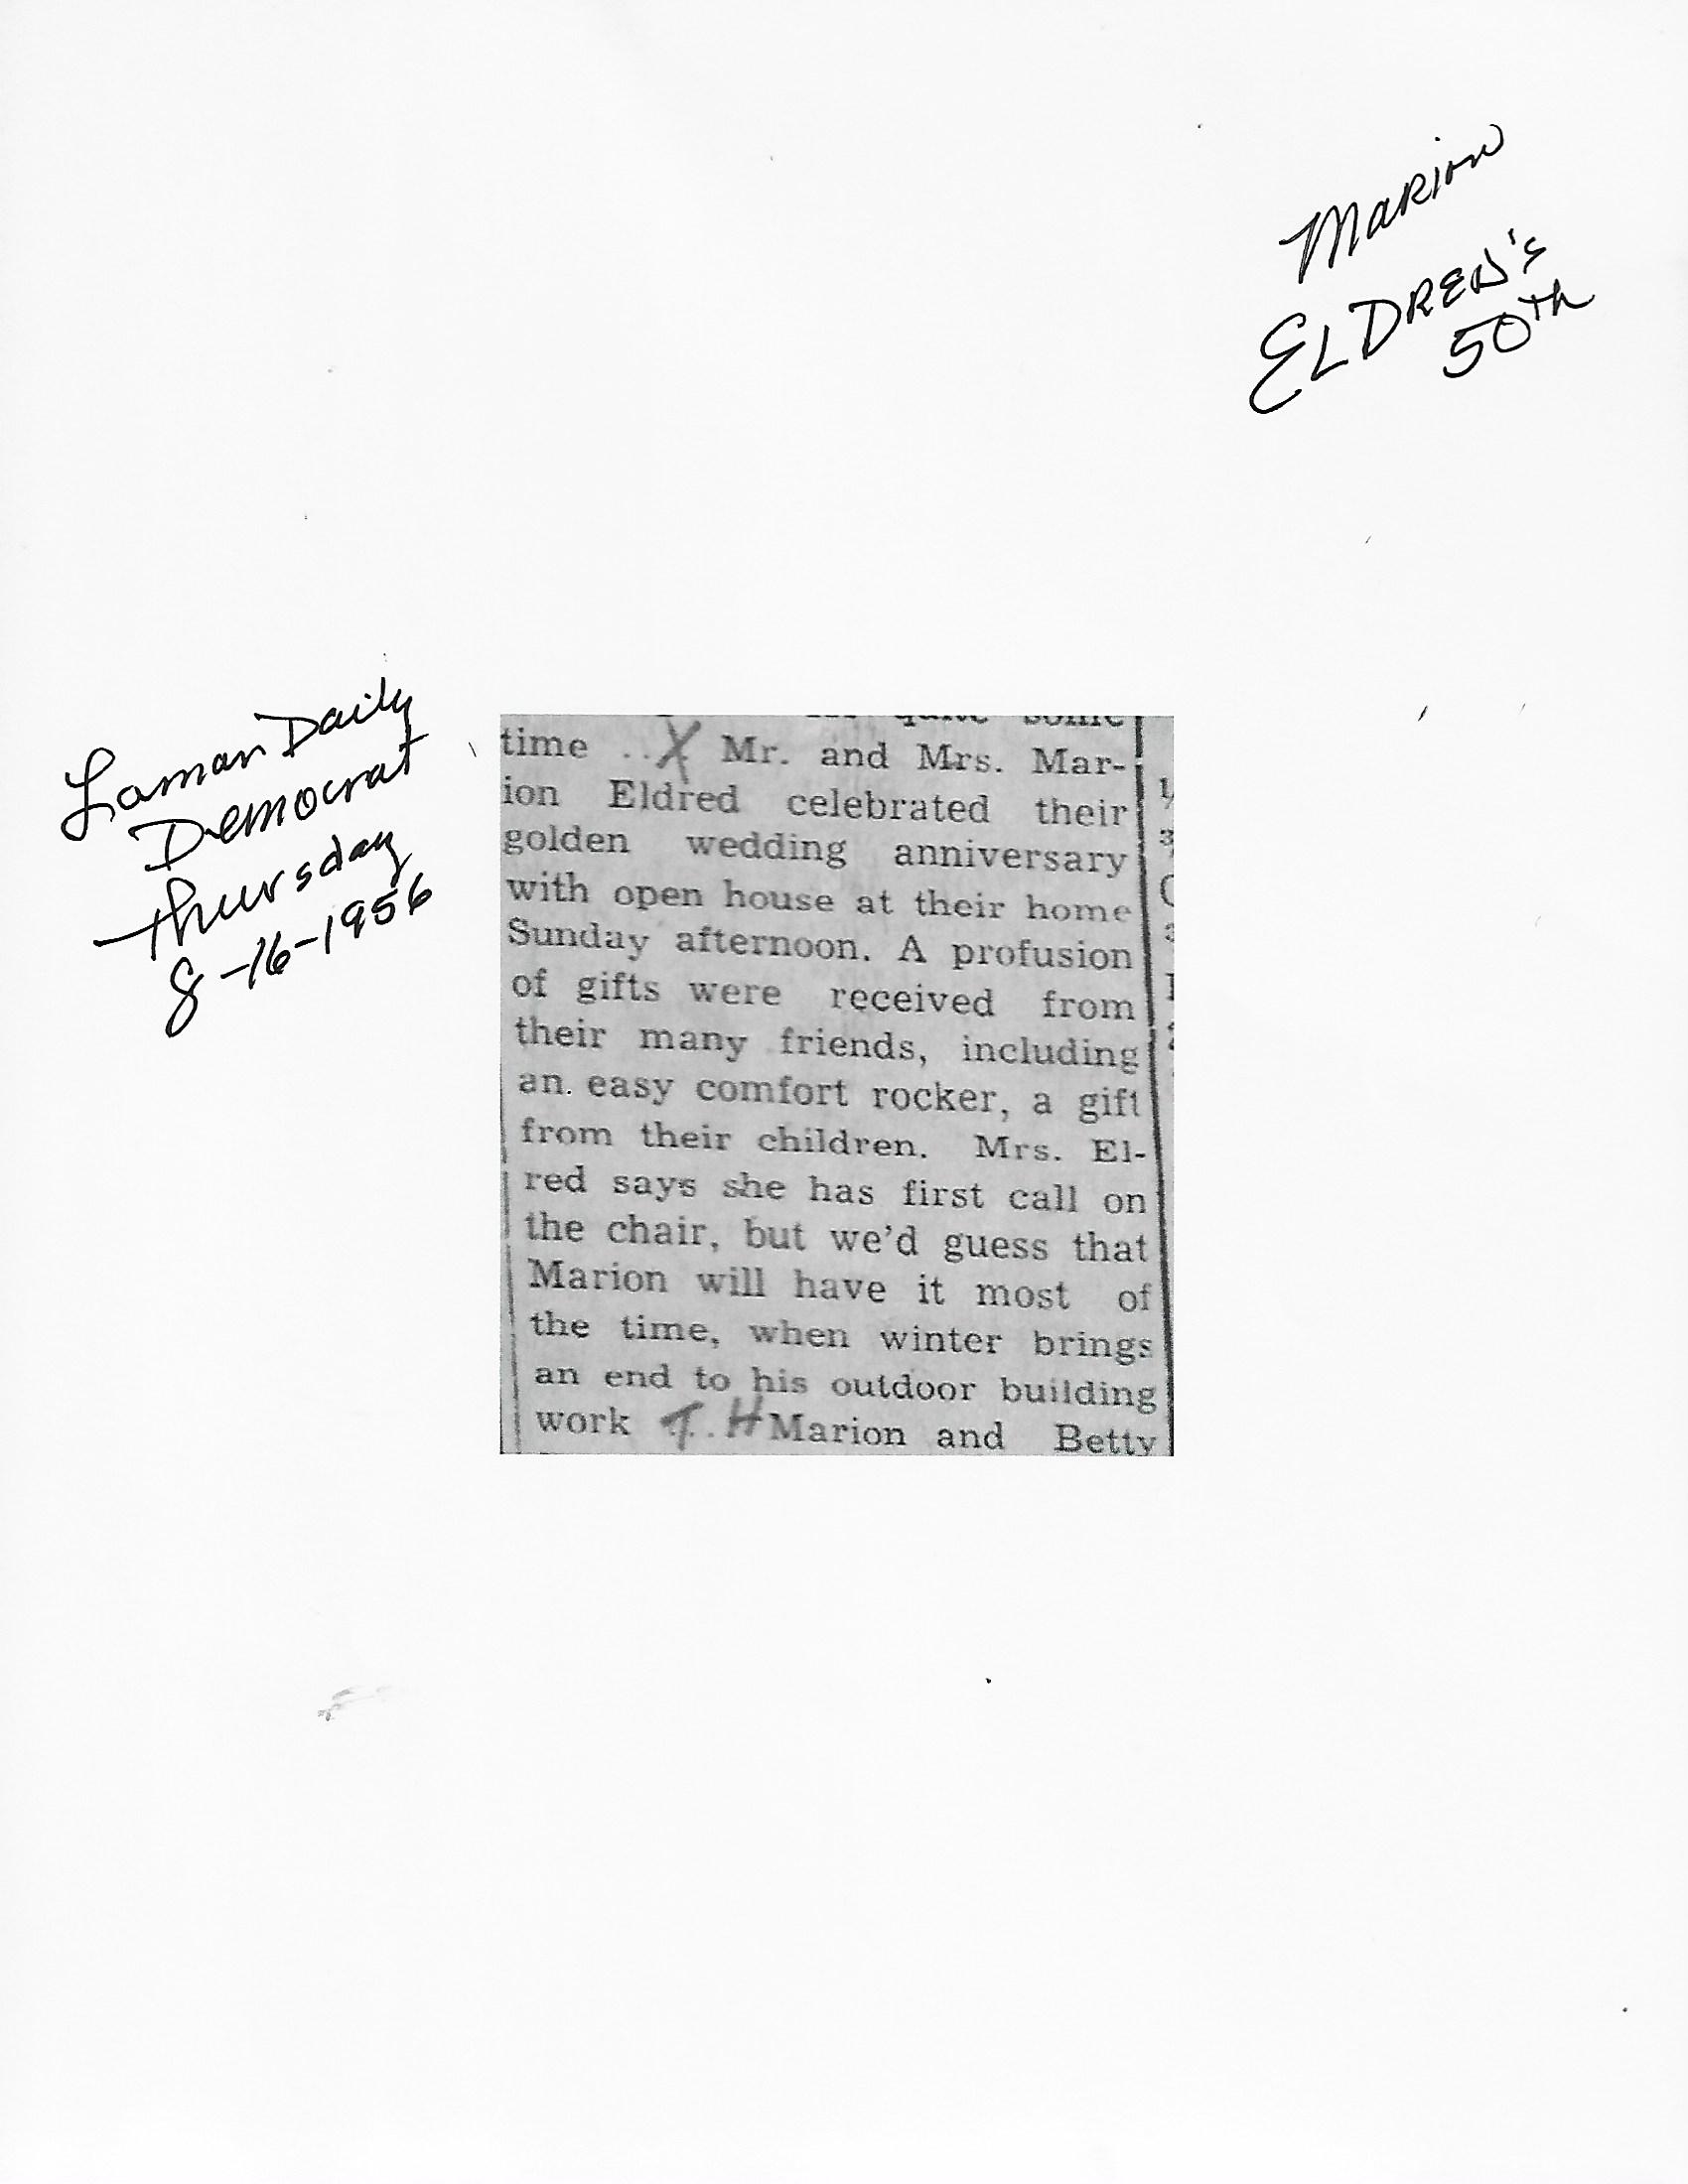 Marion
ELDRED's
50th
Lamar Daily
Democrat
Thursday
8-16-1956
quite some
time .. X Mr. and Mrs. Mar-
ion Eldred celebrated their
golden wedding anniversary
with open house at their home
Sunday afternoon. A profusion
of gifts were received from
their many friends, including
an. easy comfort rocker, a gift
from their children. Mrs. El-
red says she has first call on
the chair, but we'd guess that
Marion will have it most of
the time, when winter brings
an end to his outdoor building
work T.H Marion and Betty